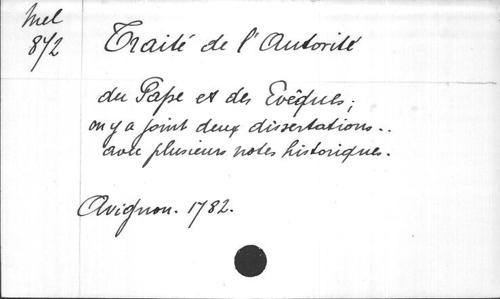 Mel
842
Traité de l'Autorité
du Pape et des Evêques;
on y a joint deux dissertations..
avec plusieurs notes historiques.
Avignon. 1782.